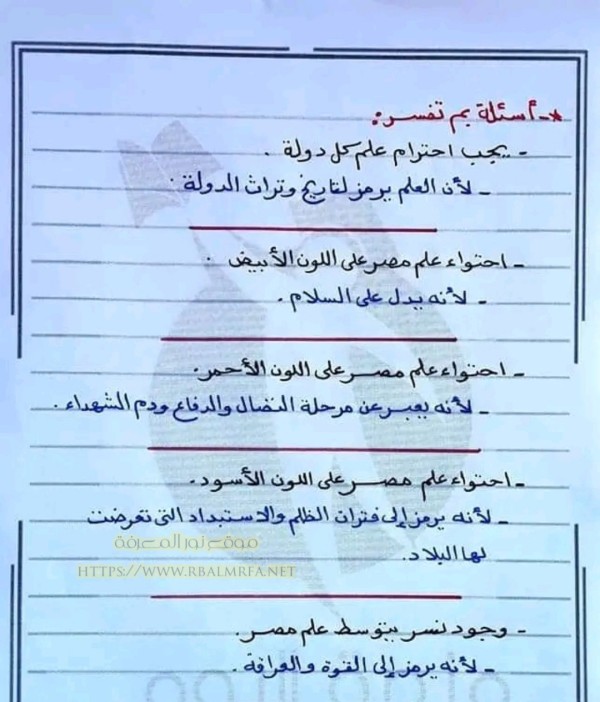 *- أسئلة بم تفسر:
- يجب احترام علم كل دولة .
- لأن العلم يرمز لتاريخ وتراث الدولة .
- احتواء علم مصر على اللون الأبيض .
- لأنه يدل على السلام .
- احتواء علم مصر على اللون الأحمر.
- لأنه يعبر عن مرحلة النضال والدفاع ودم الشهداء .
- احتواء علم مصر على اللون الأسود.
- لأنه يرمز إلى فترات الظلم والاستبداد التى تعرضت
لها البلاد.
موقع نور المعرفة
HTTPS://WWW.RBALMRFA.NET
- وجود نسر يتوسط علم مصر.
- لأنه يرمز إلى القوة والعراقة .